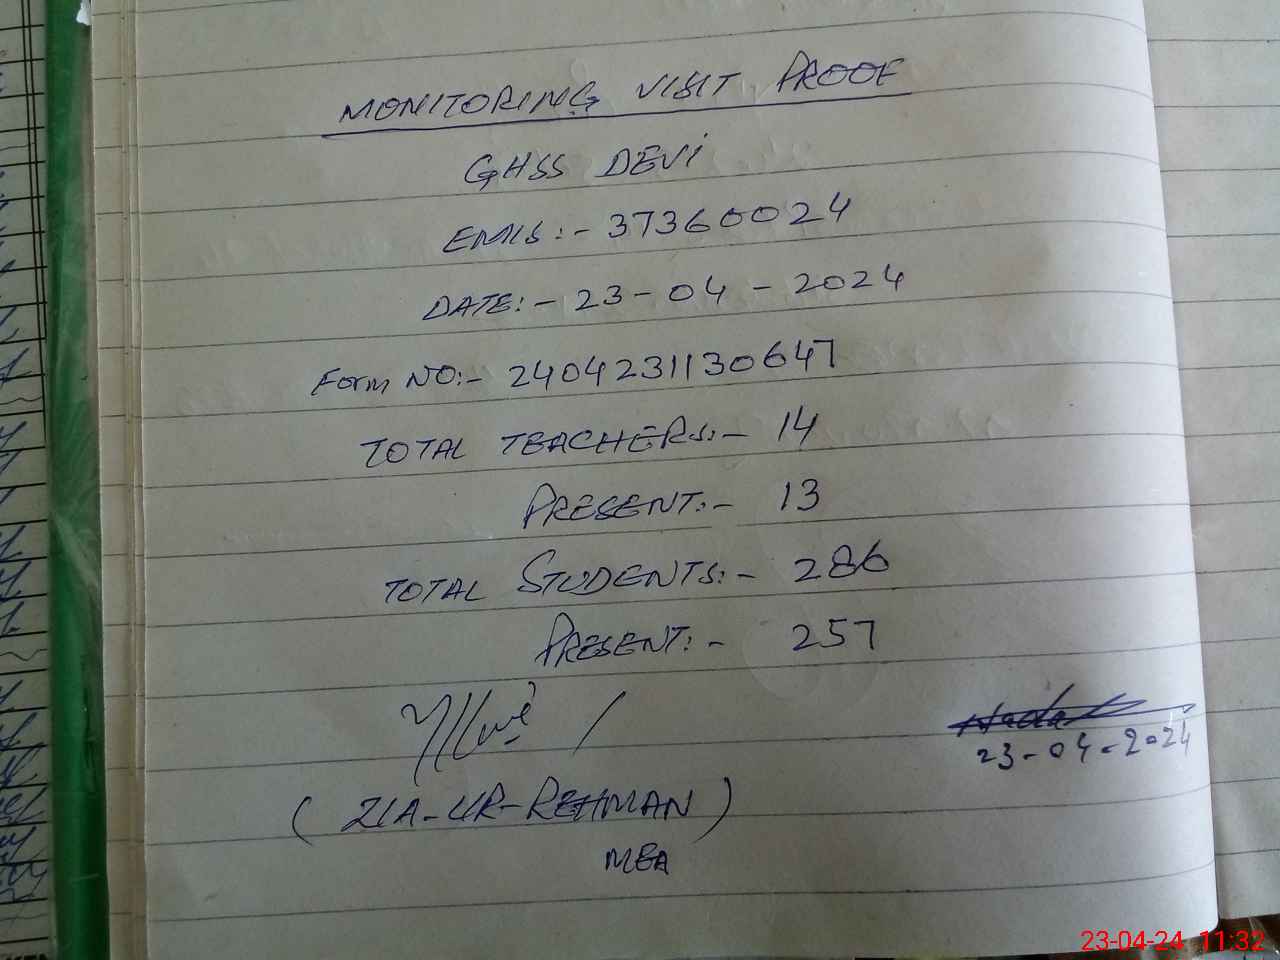 MONITORING VISIT PROOF
GHSS DEVI
EMIS:- 37360024
DATE:- 23-04-2024
Form NO:- 2404231130647
TOTAL TEACHERS:- 14
PRESENT:- 13
TOTAL STUDENTS:- 286
PRESENT:- 257
23-04-2024
(ZIA-UR-REHMAN)
MEA
23-04-24 11:32